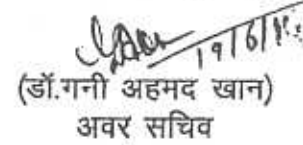 19/6/
(डॉ.गनी अहमद खान)
अवर सचिव